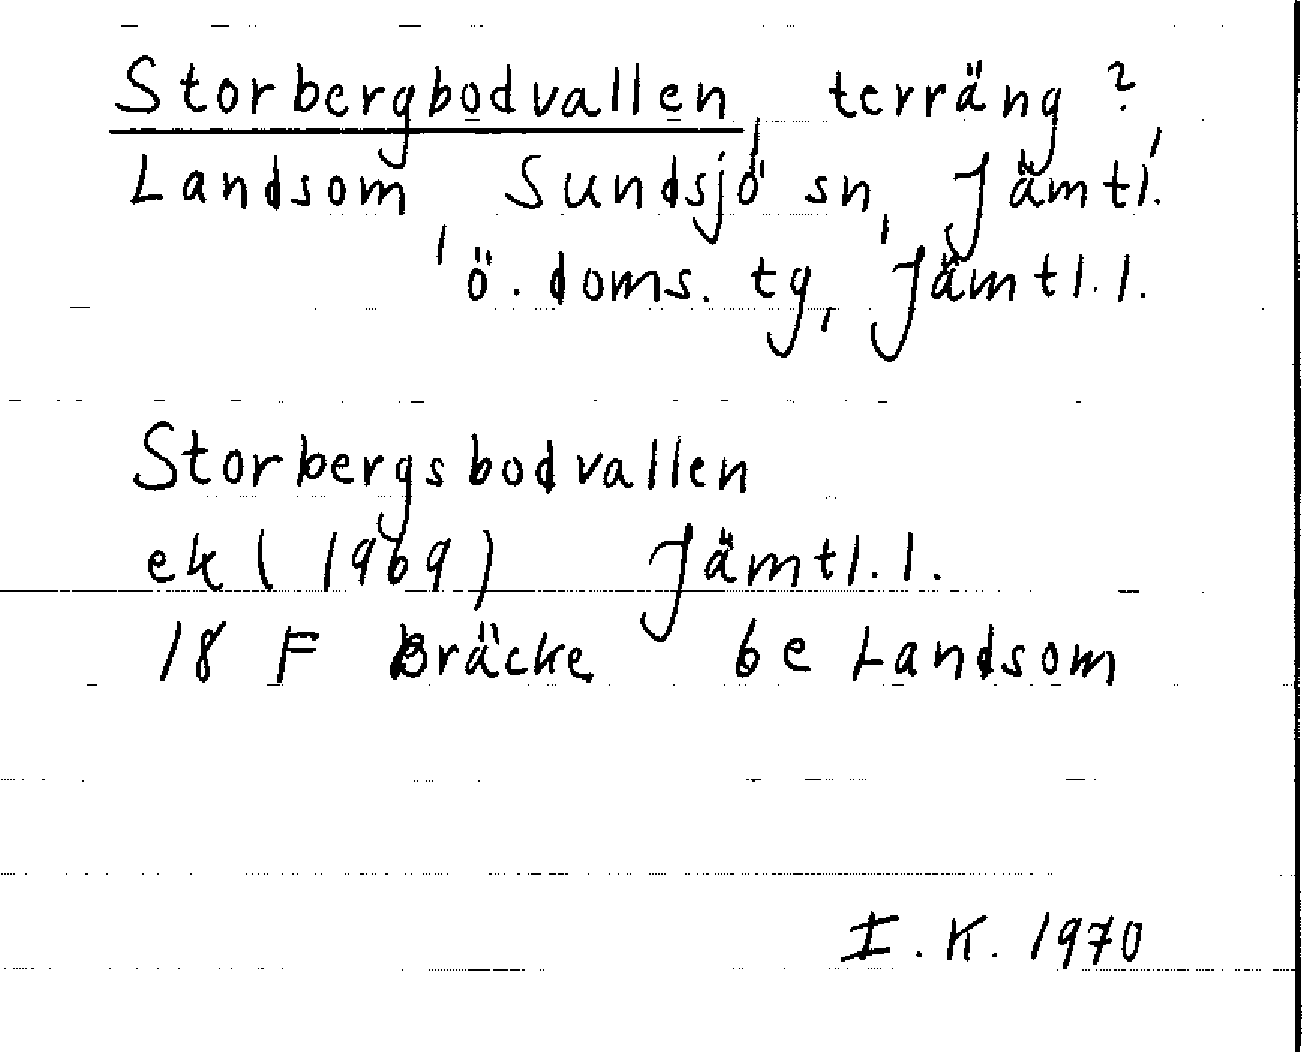 Storbergbodvallen, terräng?,
Landsom, Sundsjö sn, Jämtl.
ö. doms. tg, Jämtl. l.
Storbergsbodvallen
ek (1969) Jämtl. l.
18 F Bräcke 6e Landsom
I. K. 1970